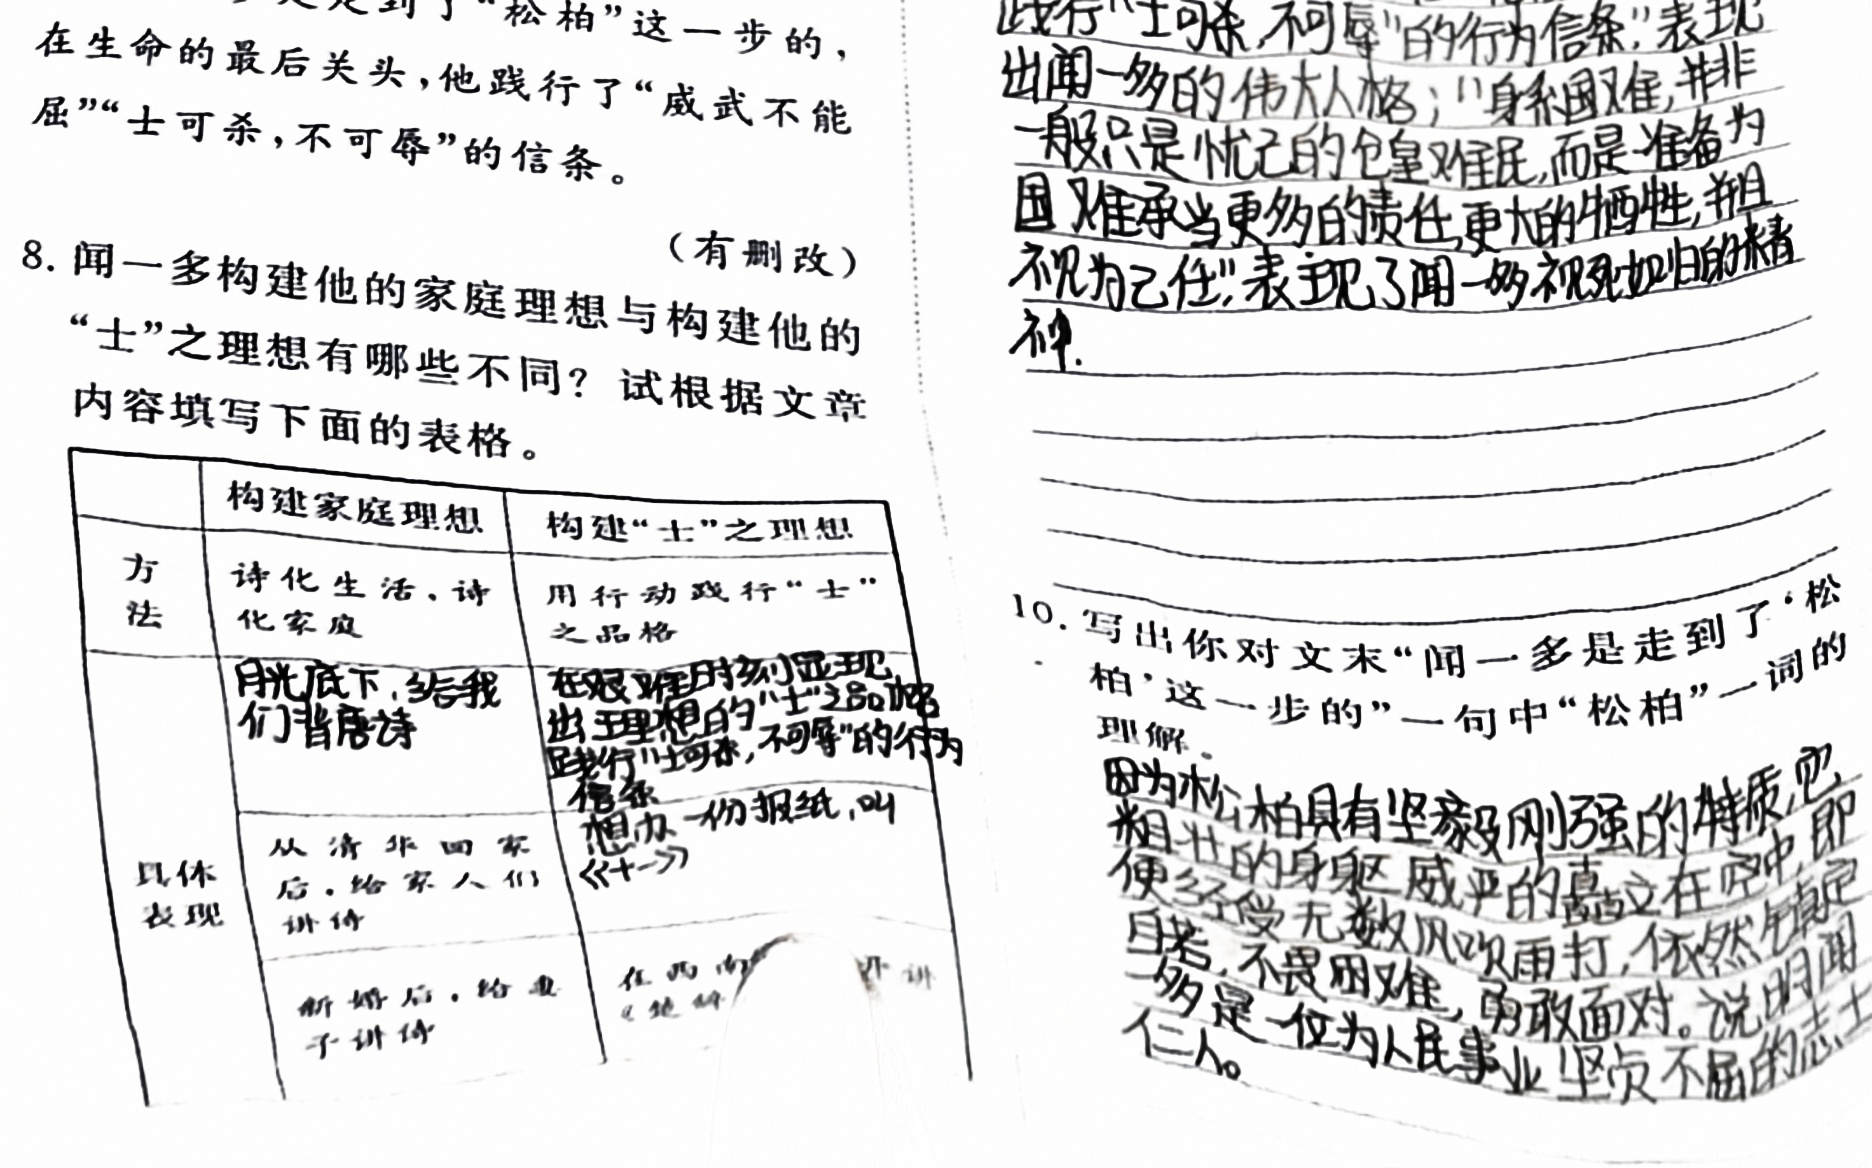 是走到了“松柏”这一步的，
在生命的最后关头，他践行了“威武不能
屈”“士可杀，不可辱”的信条。
（有删改）
8. 闻一多构建他的家庭理想与构建他的
“士”之理想有哪些不同？试根据文章
内容填写下面的表格。
构建家庭理想
构建“士”之理想
方
法
诗化生活、诗
化家庭
用行动践行“士”
之品格
具体
表现
月光底下，给我
们背唐诗
在艰难时刻显现
出理想的“士”之品格
践行“士可杀，不可辱”的行为
信条
从清华回家
后，给家人们
讲诗
想办一份报纸，叫
《十一》
新婚后，给妻
子讲诗
在西南
讲
践行“士可杀，不可辱”的行为信条”，表现
出闻一多的伟大人格；“身系国难，并非
一般只是忧己的仓皇难民，而是准备为
国难承当更多的责任，更大的牺牲，并且
视为己任”，表现了闻一多视死如归的精
神.
10. 写出你对文末“闻一多是走到了‘松
柏’这一步的”一句中“松柏”一词的
理解。
因为松柏具有坚毅刚强的特质，它
粗壮的身躯威严的矗立在空中，即
便经受无数风吹雨打，依然镇定
自若，不畏困难，勇敢面对。说明闻
一多是一位为人民事业坚贞不屈的志士
仁人。